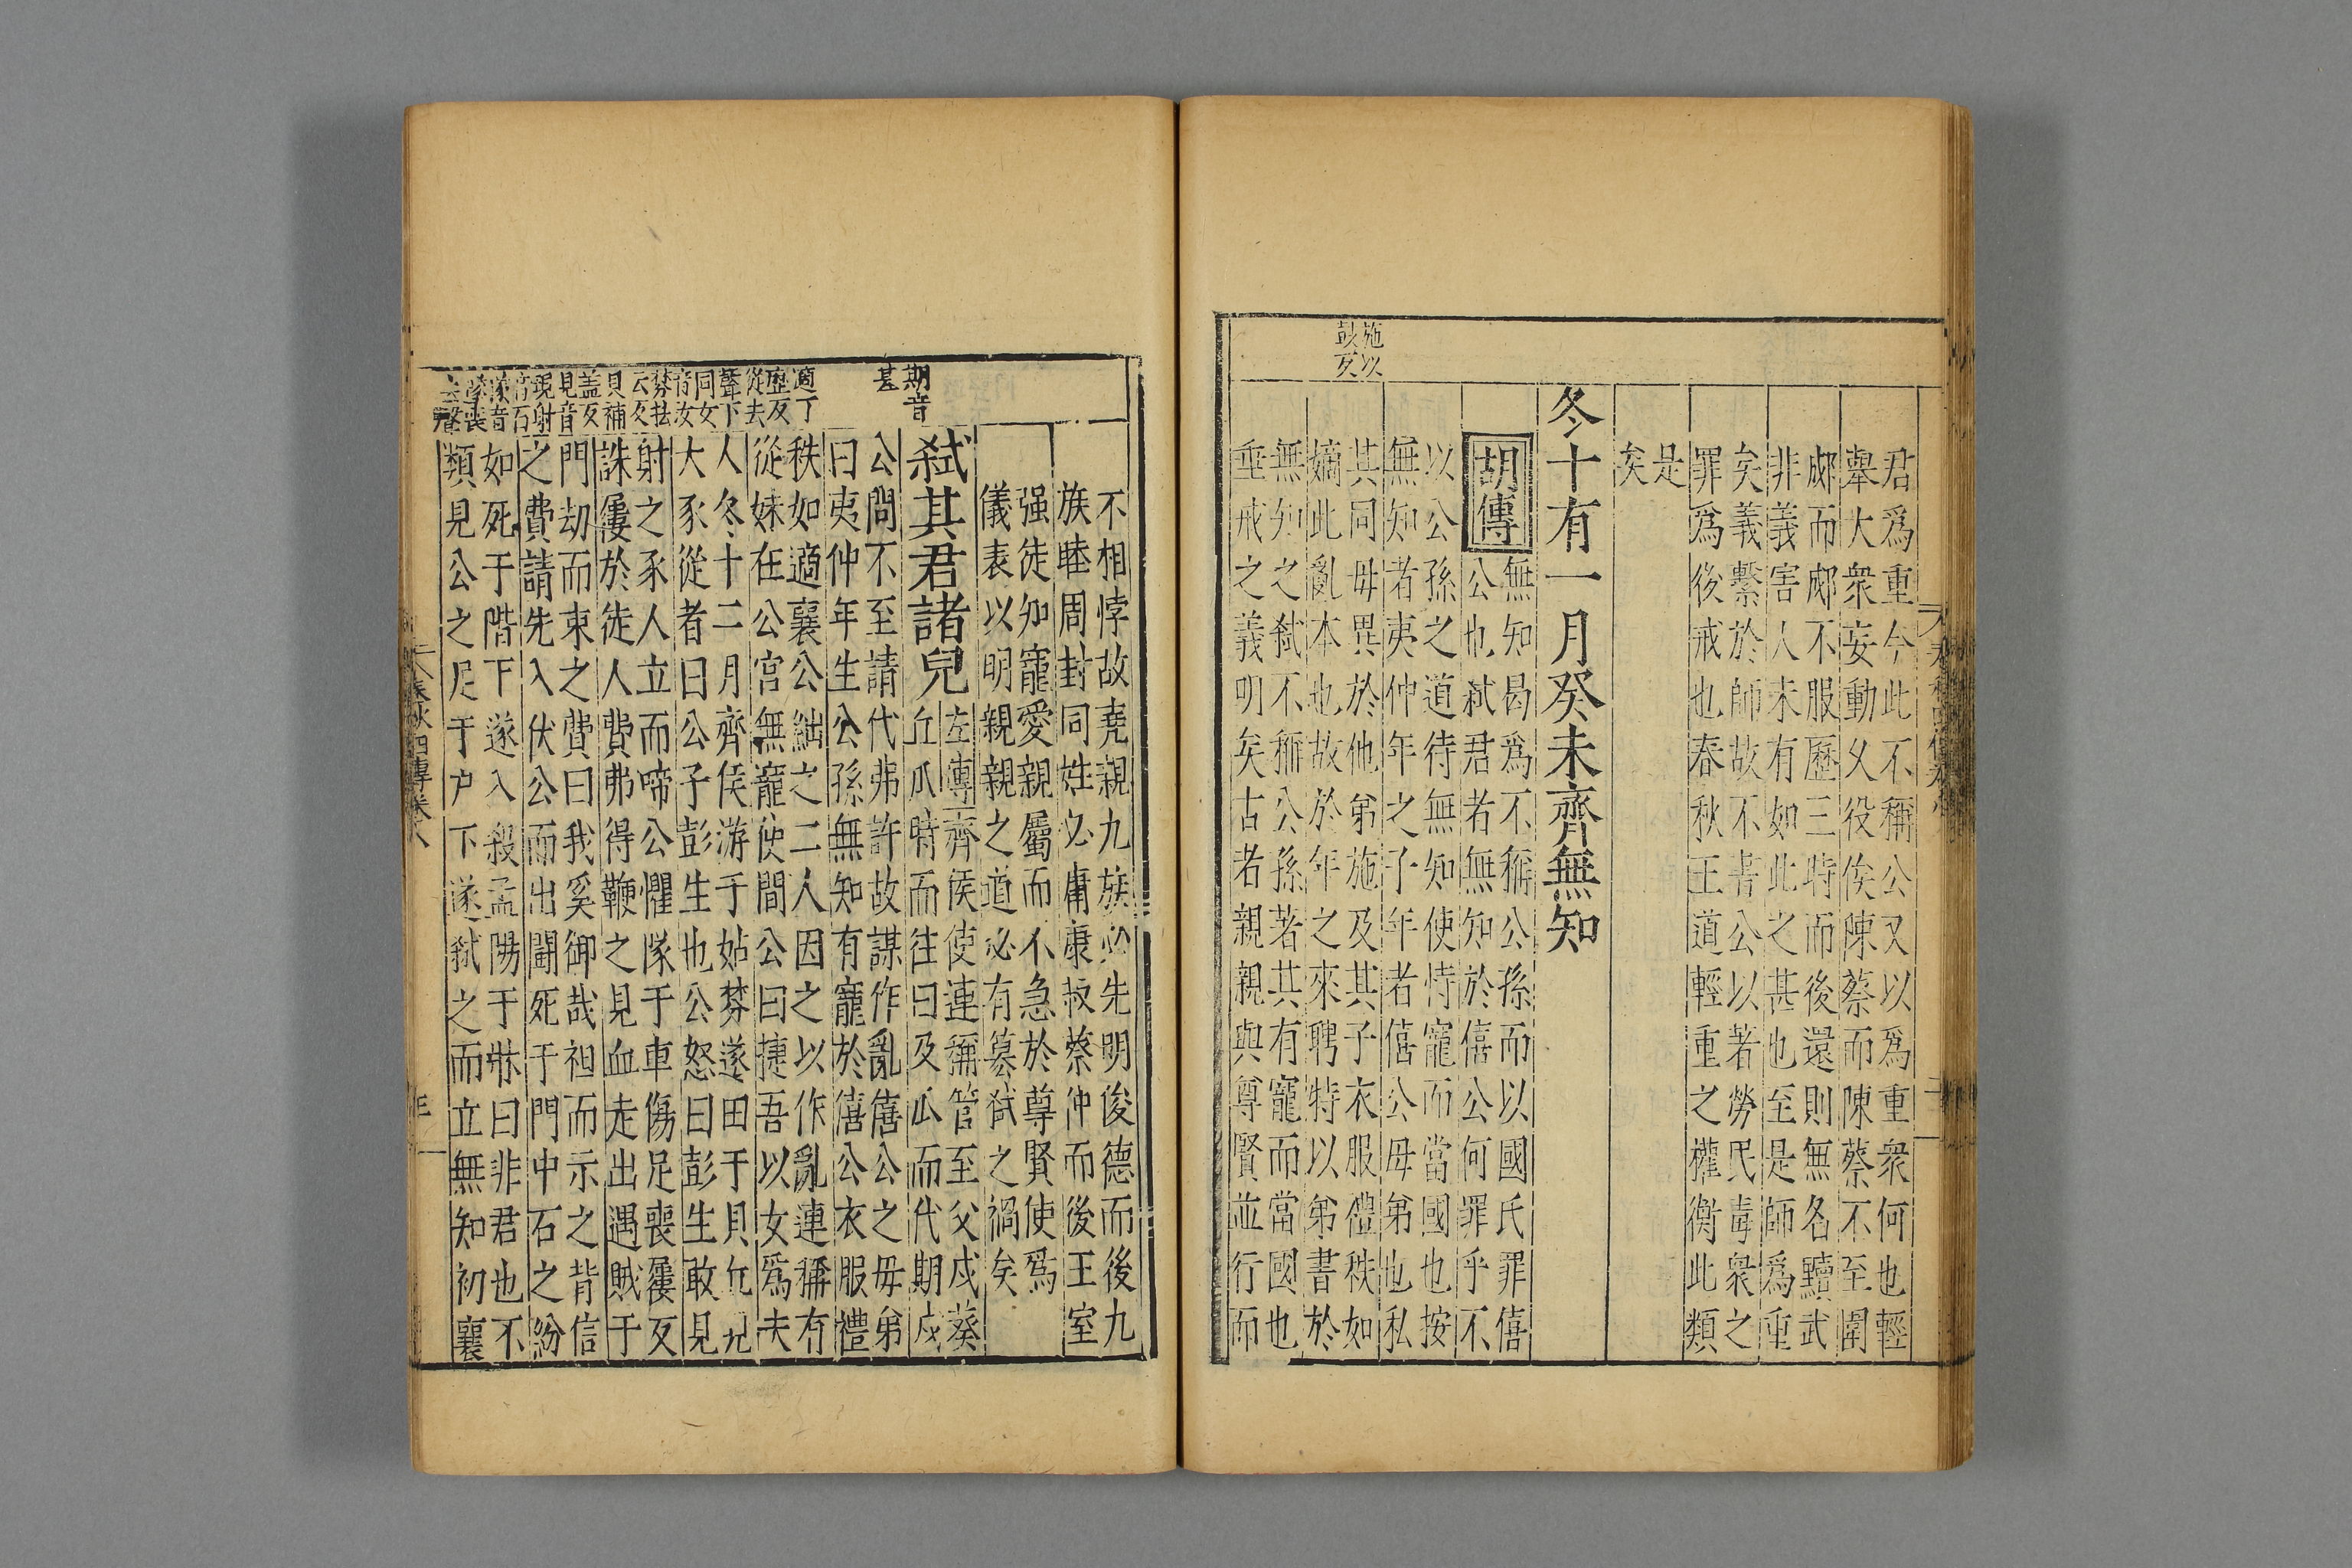 君爲重今此不稱公又以爲重衆何也輕
舉大衆妄動久役俟陳蔡而陳蔡不至圍
郕而郕不服歷三時而後還則無名黷武
非義害人未有如此之甚也至是師爲重
矣義繫於師故不書公以著勞民毒衆之
罪爲後戒也春秋王道輕重之權衡此類
是
矣
冬十有一月癸未齊無知
胡傳
無知曷爲不稱公孫而以國氏罪僖
公也弑君者無知於僖公何罪乎不
以公孫之道待無知使恃寵而當國也按
無知者夷仲年之子年者僖公母弟也私
其同母異於他弟施及其子衣服禮秩如
嫡此亂本也故於年之來聘特以弟書於
無知之弑不稱公孫著其有寵而當國也
垂戒之義明矣古者親親與尊賢並行而
施以
豉反
不相悖故堯親九族必先明俊德而後九
族睦周封同姓必庸康叔蔡仲而後王室
强徒知寵愛親屬而不急於尊賢使爲
儀表以明親親之道必有簒弑之禍矣
弑其君諸兒
左傳齊侯使連稱管至父戍葵
丘瓜時而往曰及瓜而代期戍
公問不至請代弗許故謀作亂僖公之母弟
曰夷仲年生公孫無知有寵於僖公衣服禮
秩如適襄公絀之二人因之以作亂連稱有
從妹在公宮無寵使間公曰捷吾以女爲夫
人冬十二月齊侯游于姑棼遂田于貝丘見
大豕從者曰公子彭生也公怒曰彭生敢見
射之豕人立而啼公懼隊于車傷足喪屨反
誅屨於徒人費弗得鞭之見血走出遇賊于
門劫而束之費曰我奚御哉袒而示之背信
之費請先入伏公而出鬭死于門中石之紛
如死于階下遂入殺孟陽于牀曰非君也不
類見公之足于户下遂弑之而立無知初襄
期音
朞
適丁
歷反
從去
聲下
同女
音汝
棼扶
云反
貝補
蓋反
見音
現射
音石
隊音
去聲
春秋四傳卷八